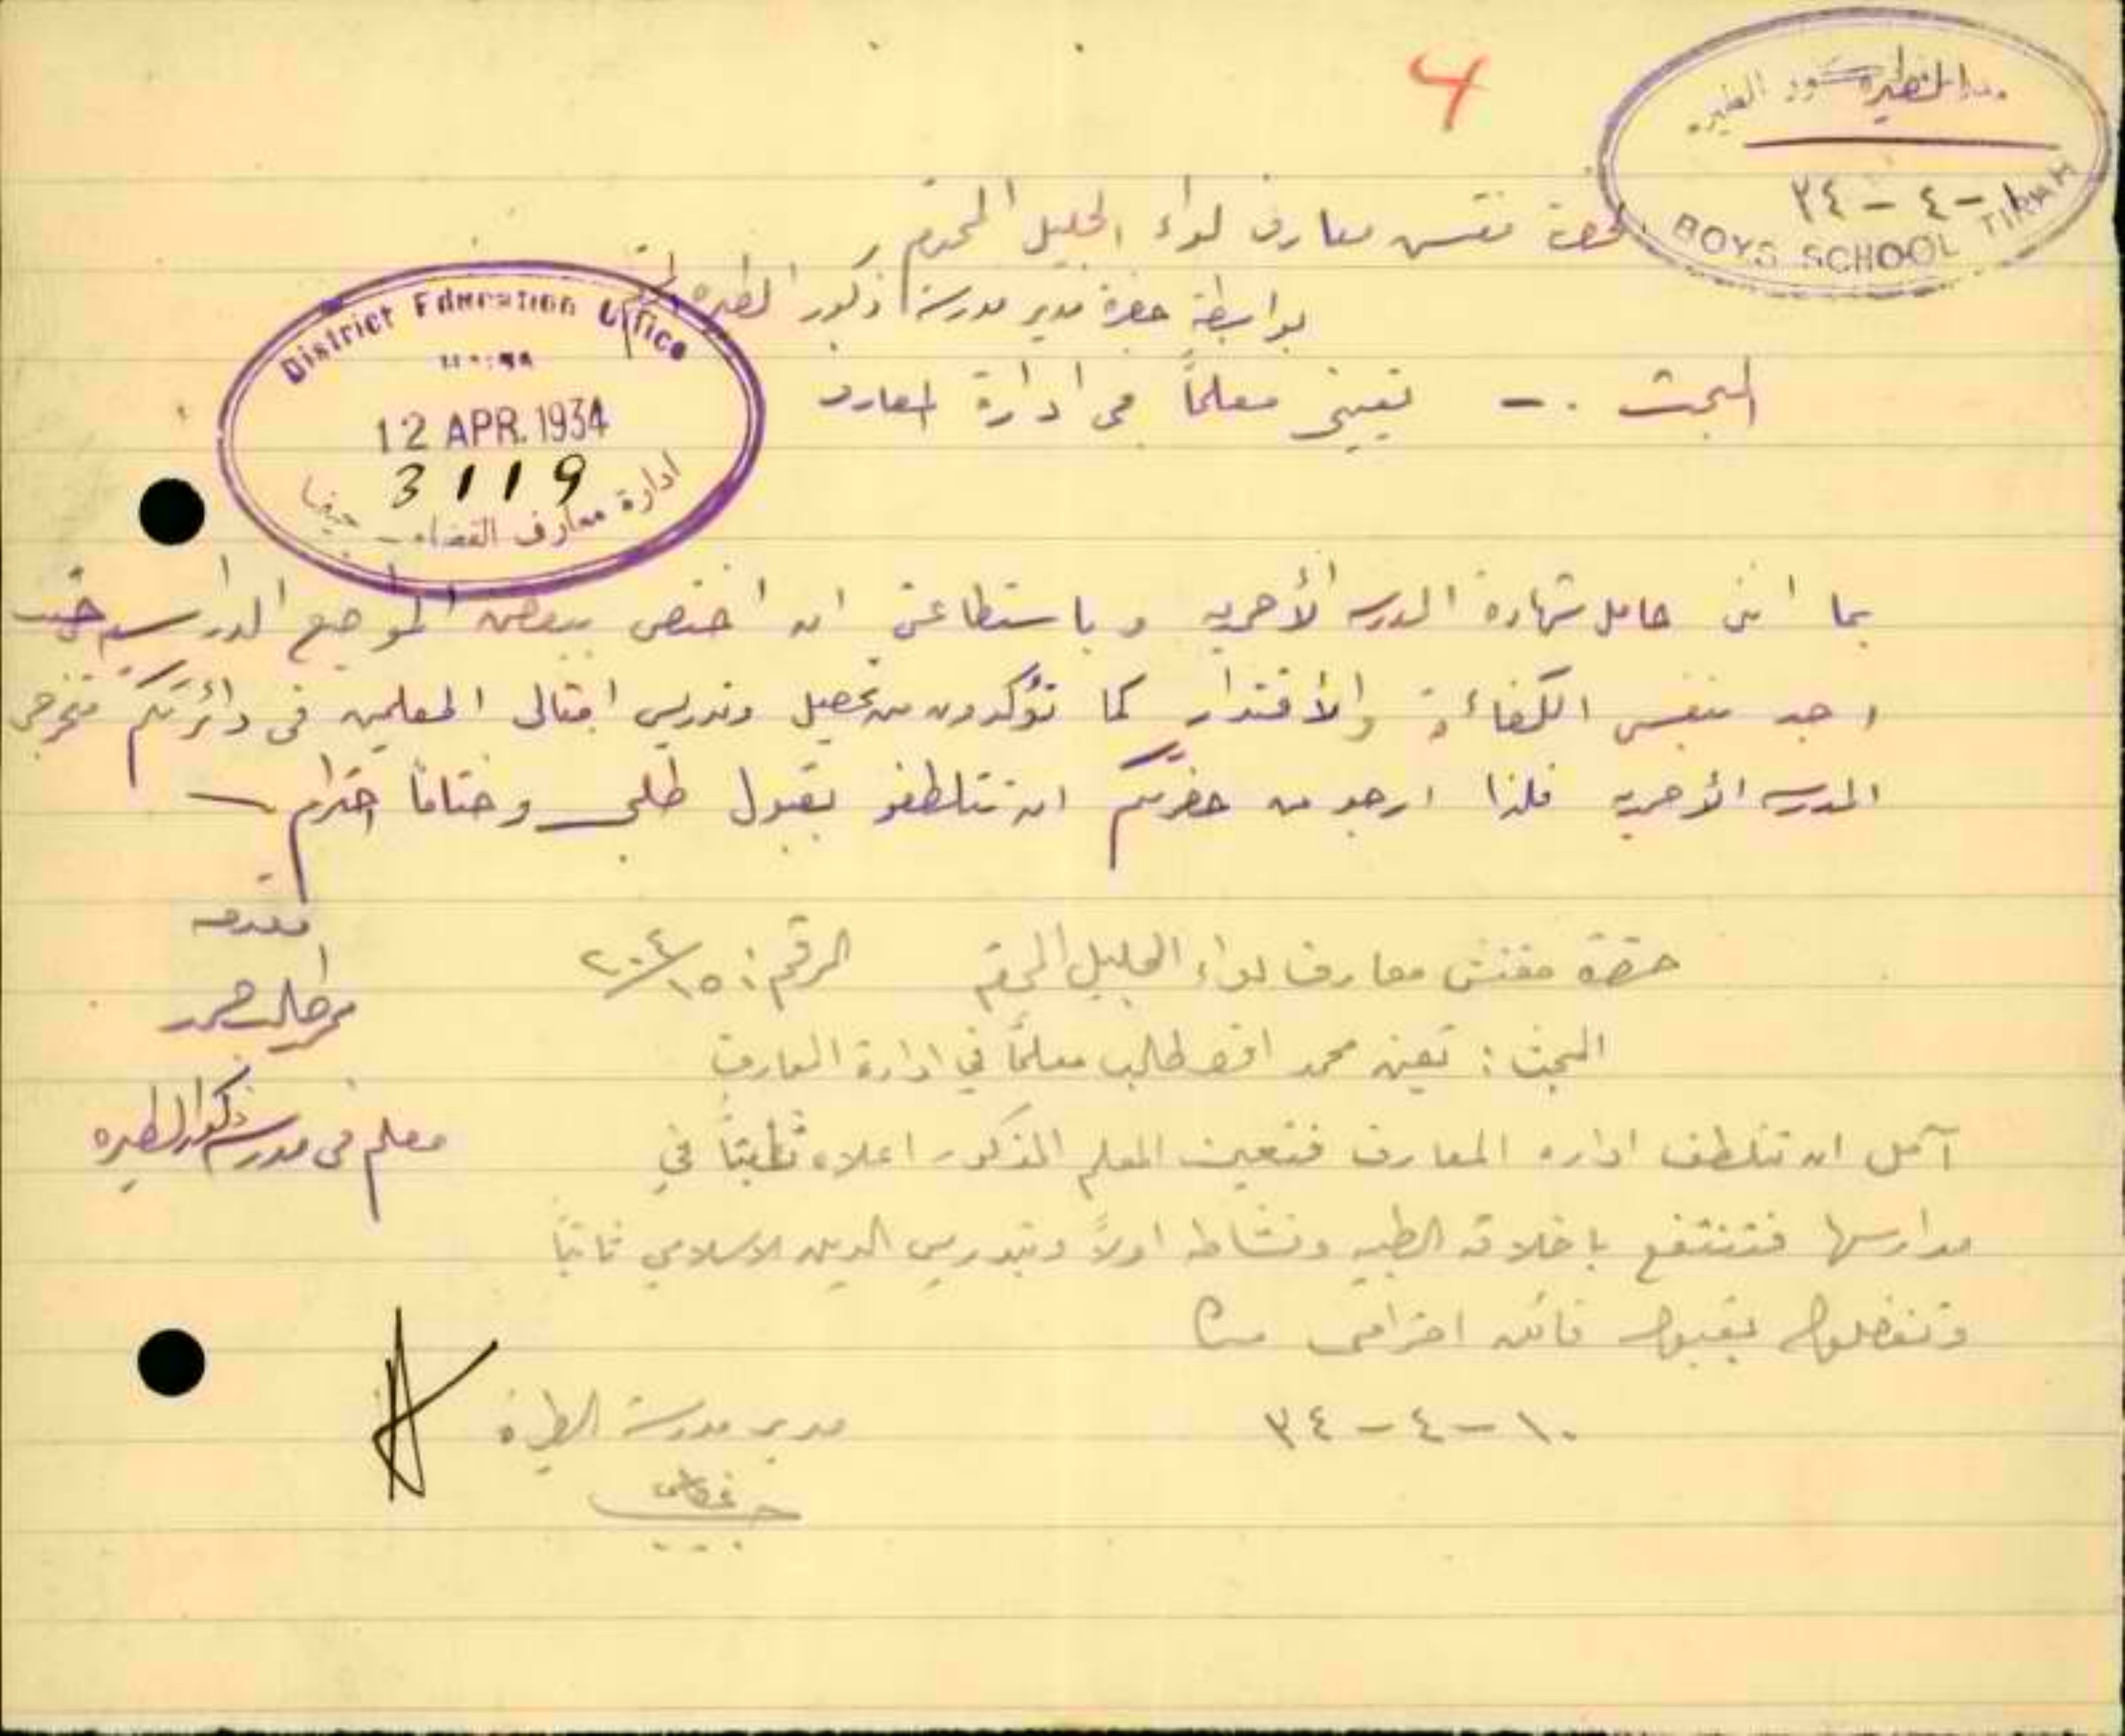 4
مدرسة ذكور الطيره
١٠-٤-٣٤
BOYS SCHOOL TIRAH
لحضرة مفتش معارف لواء الجليل المحترم
بواسطة حضرة مدير مدرسة ذكور الطيره المحترم
District Education Office
12 APR. 1934
3119
ادارة معارف القضاء - حيفا
البحث .- تعييني معلماً في ادارة المعارف
بما انني حامل شهادة المدرسه الأحمديه وباستطاعتي ان اختص ببعض المواضيع المدرسيه حيث
اجد بنفسي الكفاءة والأقتدار كما تؤكدون من تحصيل وتدريس امثالي المعلمين في دائرتكم متخرجي
المدرسه الأحمديه فلذا ارجو من حضرتكم ان تتلطفو بقبول طلبي وختاماً احترامي
مقدمه
محمد طالب
معلم في مدرسة ذكور الطيره
حضرة مفتش معارف لواء الجليل المحترم الرقم: ٢٠٤/١٥
البحث: تعين محمد افندي طالب معلماً في ادارة المعارف
آمل ان تتلطف اداره المعارف فتعين المعلم المذكور اعلاه في
مدارسها فتنتفع باخلاقه الطيبه ونشاطه اولاً وبتدريس الدين الاسلامي ثانياً
وتفضلوا بقبول فائق احترامي
١٠-٤-٣٤
مدير مدرسة الطيرة